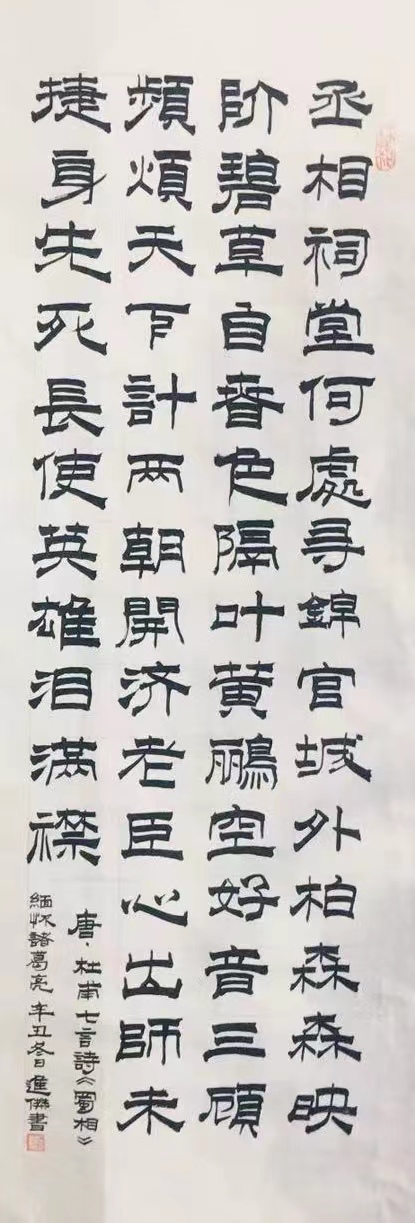 丞相祠堂何處尋錦官城外柏森森映
阶碧草自春色隔叶黄鹂空好音三顧
頻煩天下計两朝開济老臣心出師未
捷身先死長使英雄泪满襟
唐·杜甫七言詩《蜀相》
緬怀諸葛亮 辛丑冬日進傑書